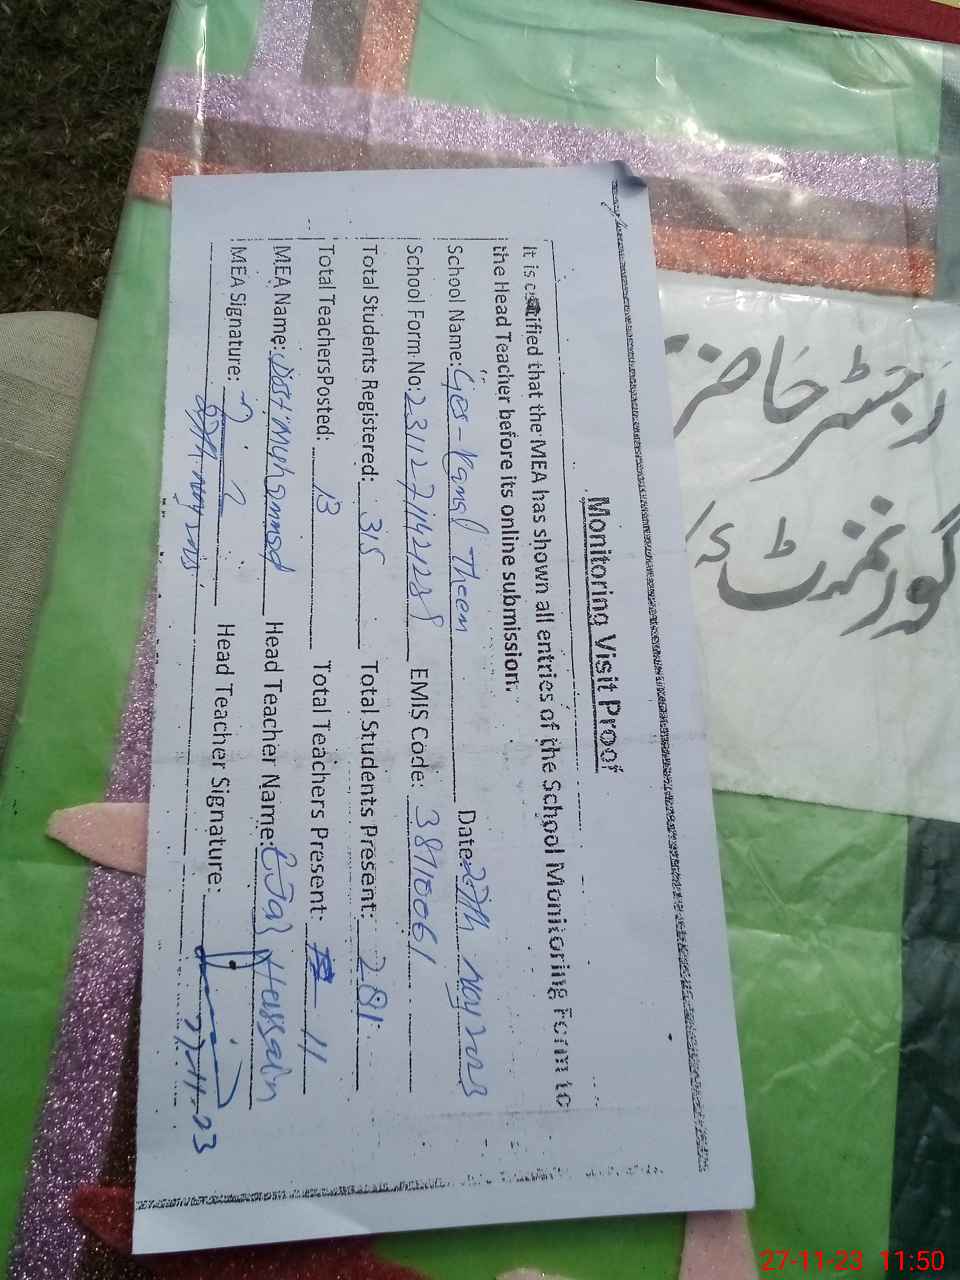 Monitoring Visit Proof
It is certified that the MEA has shown all entries of the School Monitoring Form to
the Head Teacher before its online submission.
School Name: Ges - Theem Date: 27th nov 2023
School Form No: EMIS Code: 38710061
Total Students Registered: 315 Total Students Present: 281
Total Teachers Posted: 13 Total Teachers Present: 11
MEA Name: Dost Muhammad Head Teacher Name: Ejaz Hussain
MEA Signature: Head Teacher Signature:
27th nov 2023 27-11-23
رجسٹر حاضری
گورنمنٹ
27-11-23 11:50